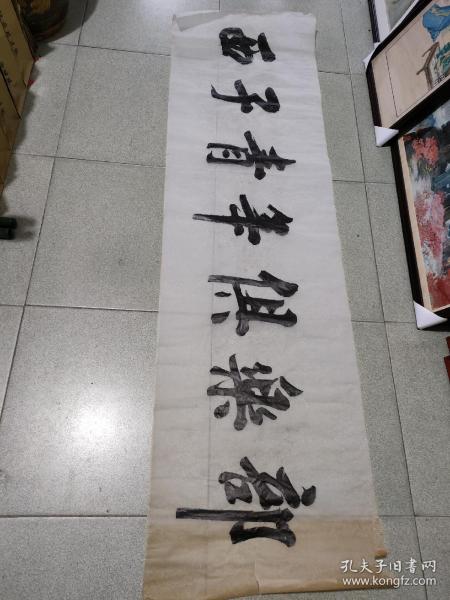 西子青年俱樂部
孔夫子旧书网
www.kongfz.com